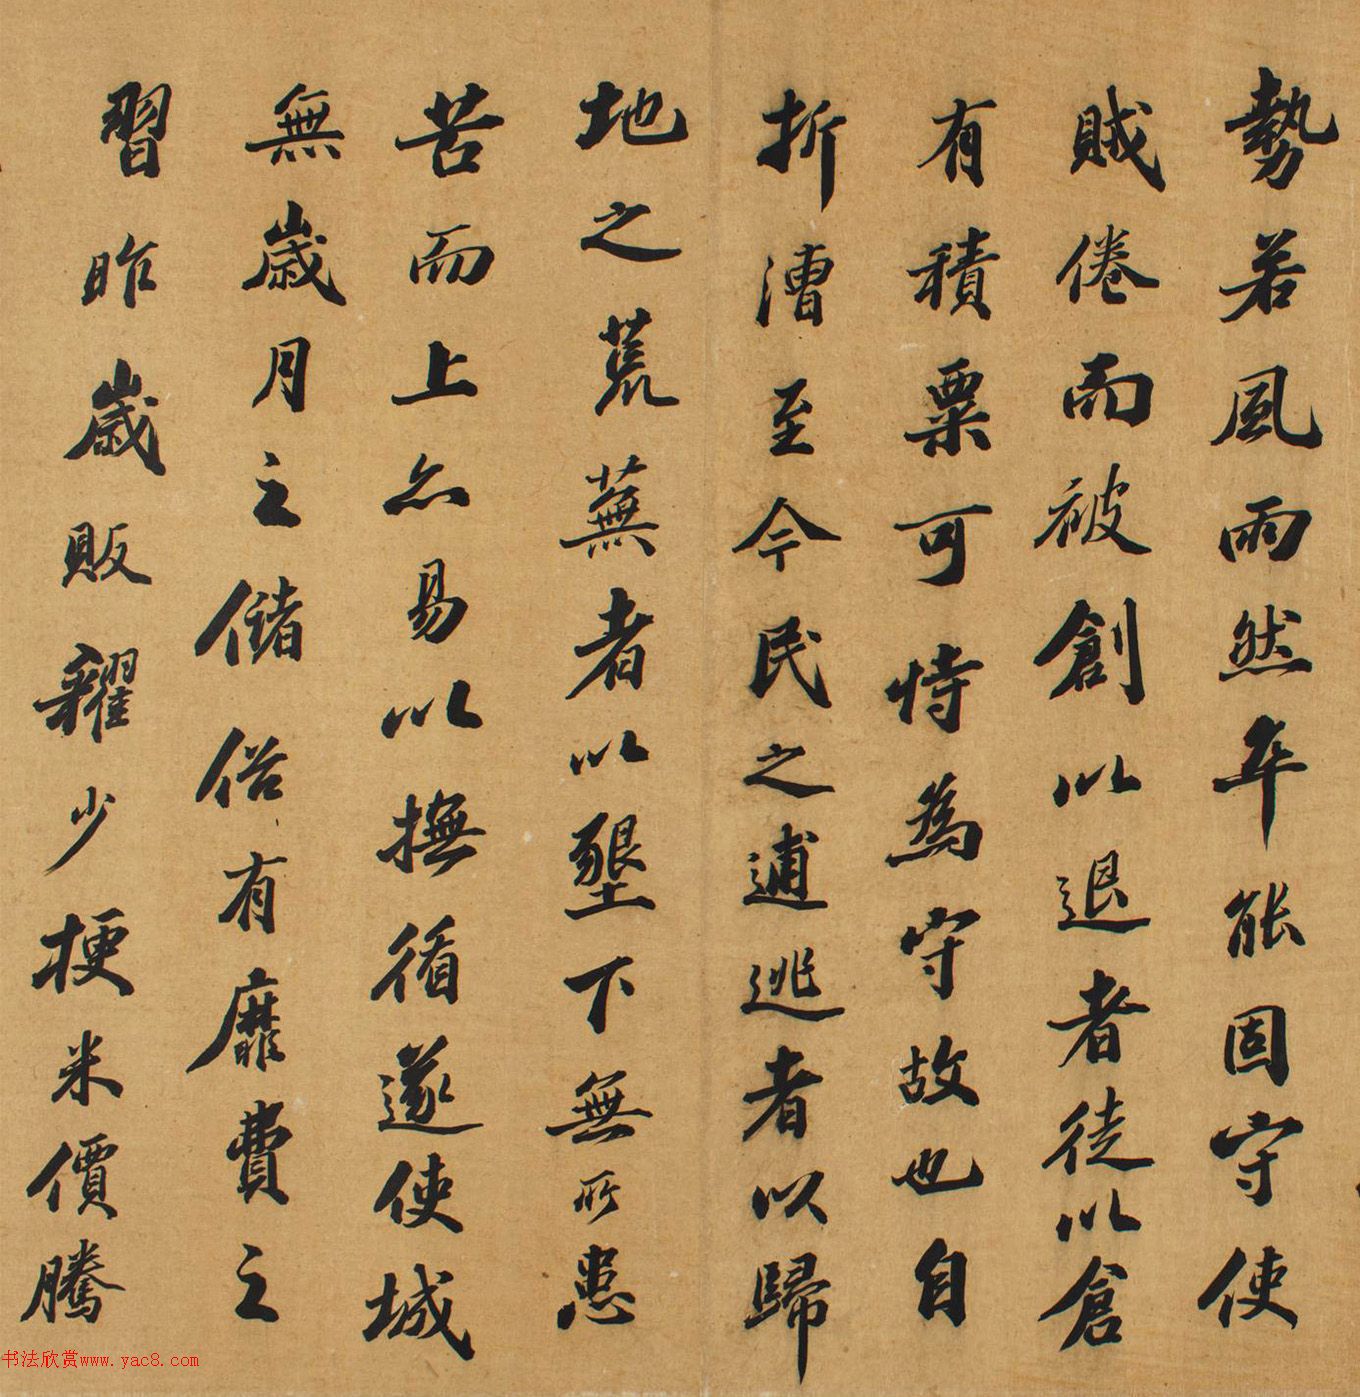 勢若風雨然卒能固守使
賊倦而被創以退者徒以倉
有積粟可恃為守故也自
折漕至今民之逋逃者以歸
地之荒蕪者以墾下無所患
苦而上亦易以撫循遂使城
無歲月之儲俗有靡費之
習昨歲販糶少梗米價騰
书法欣赏www.yac8.com